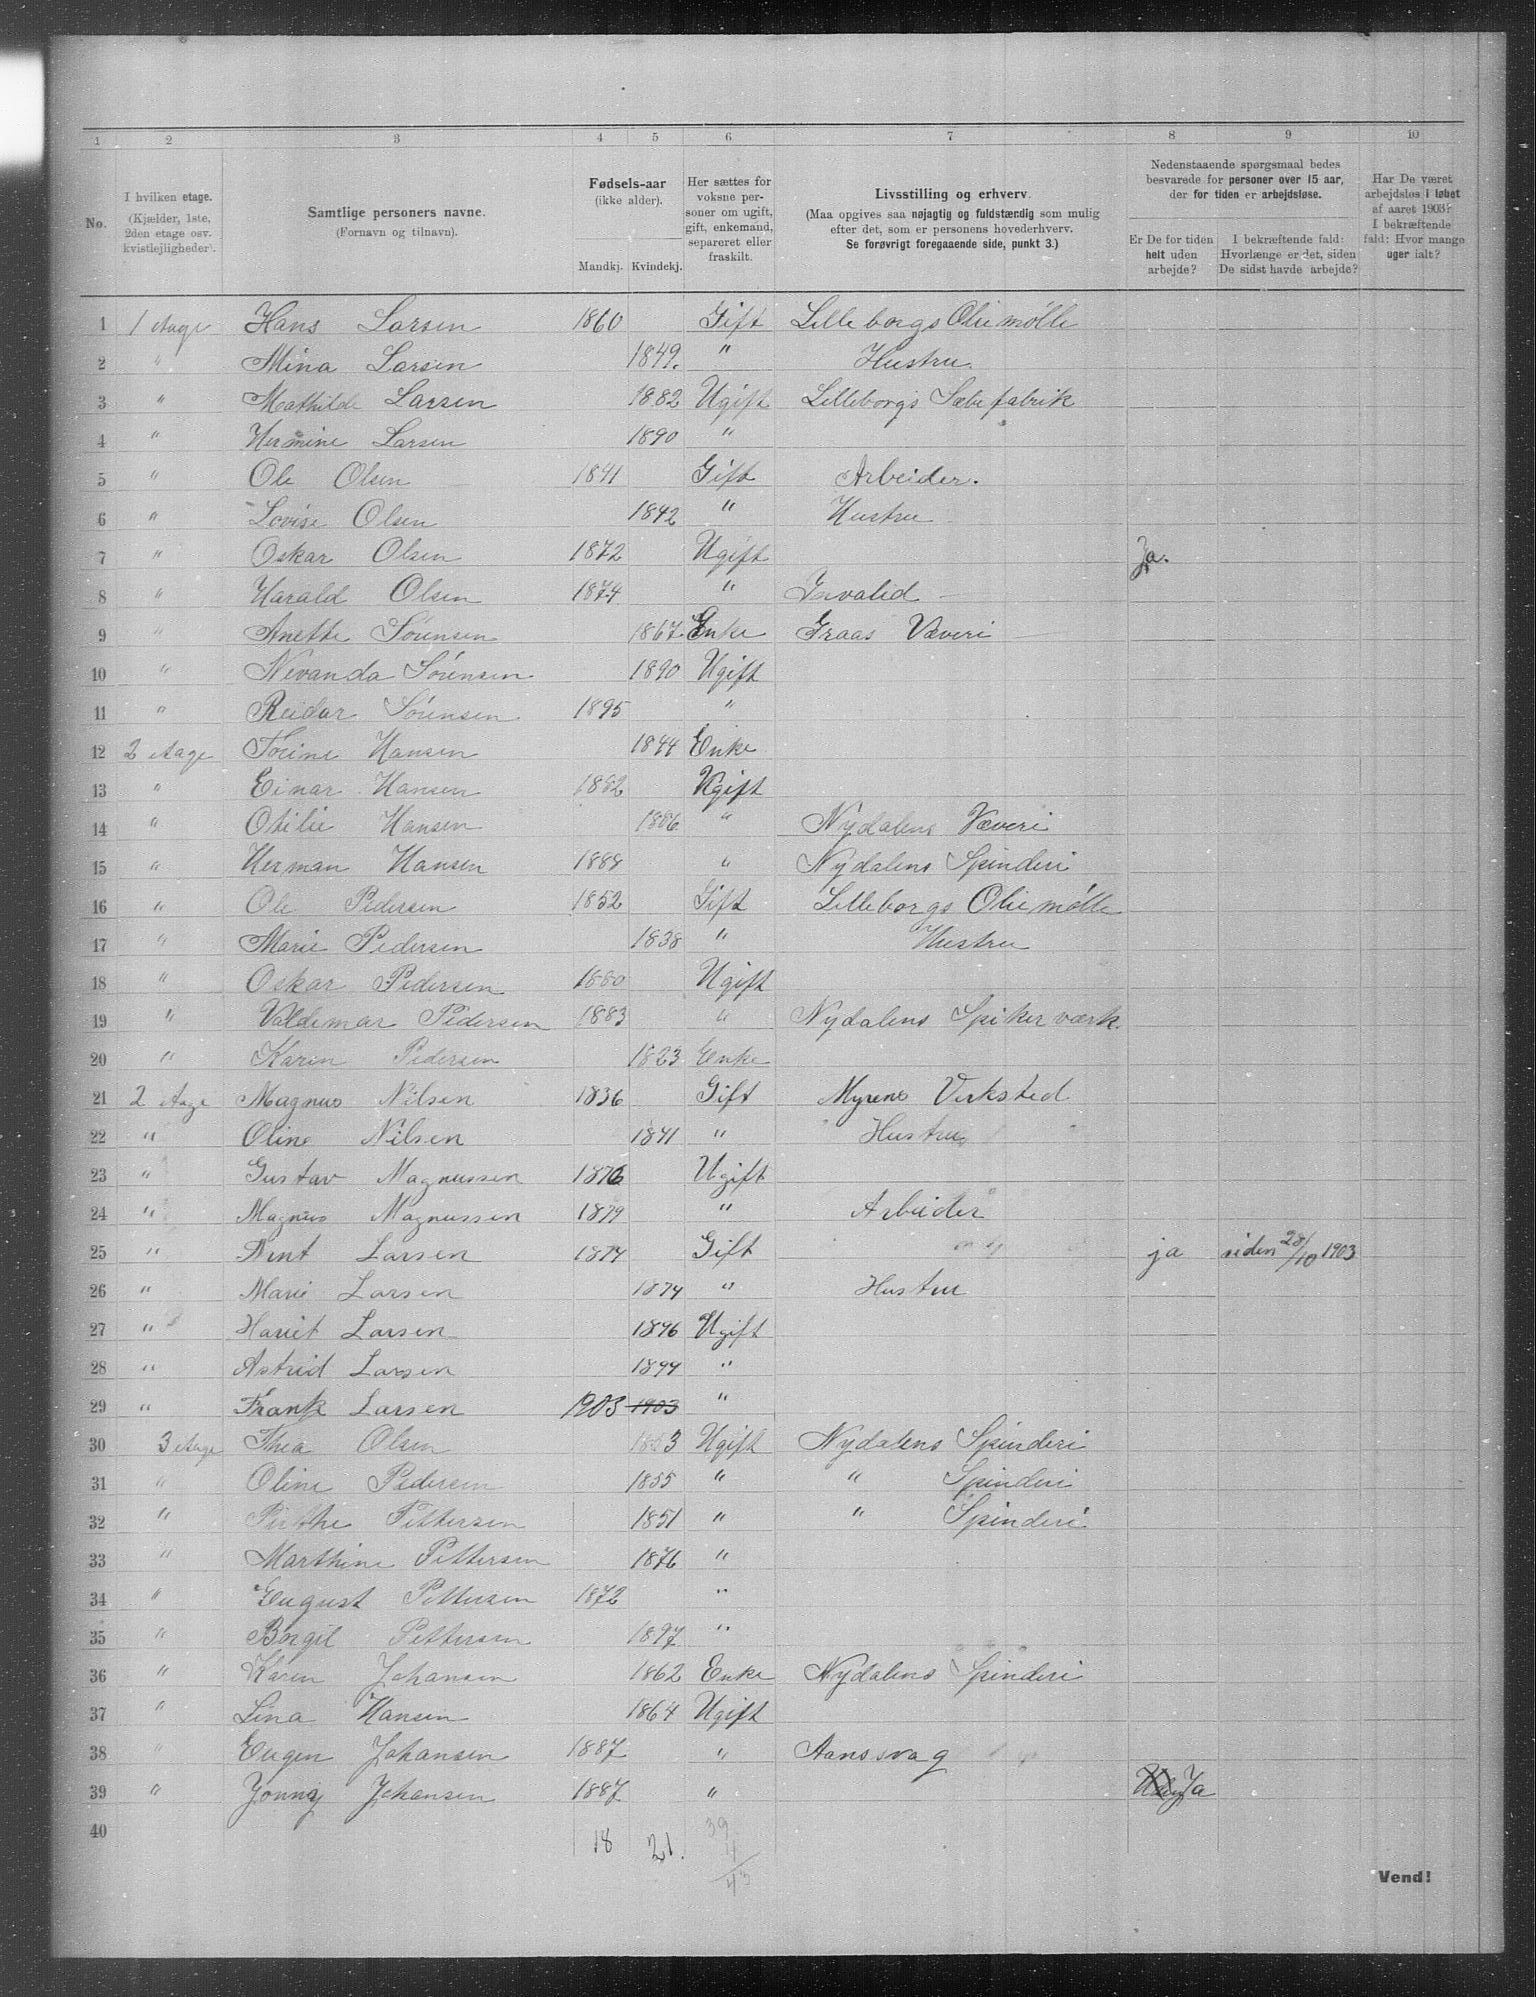 1 2 3 4 5 6 7 8 9 10
No.
I hvilken etage.
(Kjælder, 1ste,
2den etage osv.
kvistlejligheder).
Samtlige personers navne.
(Fornavn og tilnavn).
Fødsels-aar
(ikke alder).
Mandkj. Kvindekj.
Her sættes for
voksne per-
soner om ugift,
gift, enkemand,
separeret eller
fraskilt.
Livsstilling og erhverv.
(Maa opgives saa nøjagtig og fuldstændig som mulig
efter det, som er personens hovederhverv.
Se forøvrigt foregaaende side, punkt 3.)
Nedenstaaende spørgsmaal bedes
besvarede for personer over 15 aar,
der for tiden er arbejdsløse.
Er De for tiden
helt uden
arbejde?
I bekræftende fald:
Hvorlænge er det, siden
De sidst havde arbejde?
Har De været
arbejdsløs i løbet
af aaret 1903?
I bekræftende
fald: Hvor mange
uger ialt?
1 1 Etage Hans Larsen 1860 Gift Lilleborgs Oliemølle
2 " Mina Larsen 1849. " Hustru.
3 " Mathilde Larsen 1882 Ugift Lilleborgs Sæbefabrik
4 " Hermine Larsen 1890 "
5 " Ole Olsen 1841 Gift Arbeider.
6 " Lovise Olsen 1842 " Hustru
7 " Oskar Olsen 1872 Ugift Ja.
8 " Harald Olsen 1874 " Invalid
9 " Anette Sörensen 1867 Enke Graas Væveri
10 " Nevanda Sörensen 1890 Ugift
11 " Reidar Sörensen 1895 "
12 2 Etage Hansen 1844 Enke
13 " Einar Hansen 1882 Ugift
14 " Otilie Hansen 1886 " Nydalens Væveri
15 " Herman Hansen 1888 " Nydalens Spinderi
16 " Ole Pedersen 1852 Gift Lilleborgs Oliemølle
17 " Marie Pedersen 1838 " Hustru
18 " Oskar Pedersen 1880 Ugift
19 " Valdemar Pedersen 1883 " Nydalens Spikerværk.
20 " Karen Pedersen 1823 Enke
21 2 Etage Magnus Nilsen 1836 Gift Myrens Verksted
22 " Oline Nilsen 1841 " Hustru
23 " Gustav Magnussen 1876 Ugift
24 " Magnus Magnussen 1879 " Arbeider
25 " Arnt Larsen 1874 Gift ja siden 28/10 1903
26 " Marie Larsen 1874 " Hustru
27 " Hariet Larsen 1896 Ugift
28 " Astrid Larsen 1899 "
29 " Frank Larsen 1903 1903 "
30 3 Etage Thea Olsen 1853 Ugift Nydalens Spinderi
31 " Oline Pedersen 1855 " " Spinderi
32 " Pettersen 1851 " " Spinderi
33 " Marthine Pettersen 1876 "
34 " August Pettersen 1872 "
35 " Borgil Pettersen 1897 "
36 " Karen Johansen 1862 Enke Nydalens Spinderi
37 " Lina Hansen 1864 Ugift
38 " Eugen Johansen 1887 " Aanssvag
39 " Johansen 1887 " Ja
40 18 21. 39
4
43
Vend!